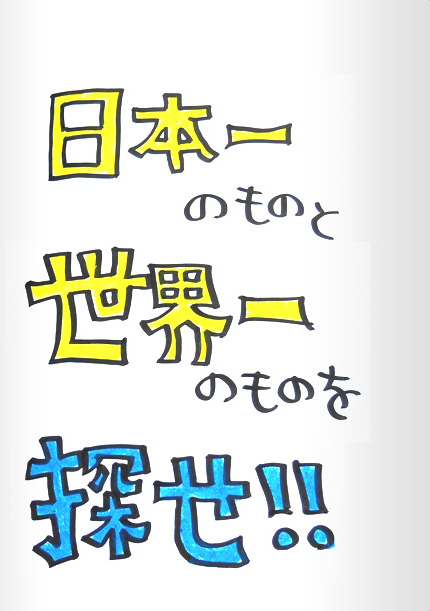 日本一
のものと
世界一
のものを
探せ!!